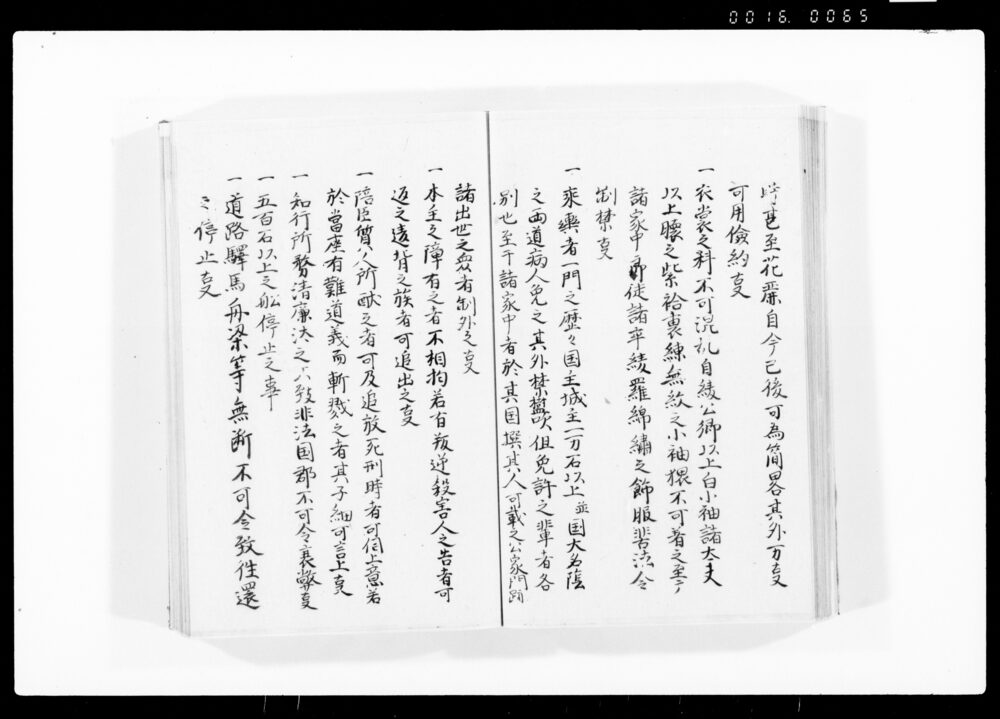 0016. 0065
時甚至花麗自今已後可為簡畧其外万事
可用儉約事
一 衣裳之科不可混乱自綾公卿以上白小袖諸大夫
以上聴之紫袷裏練無紋之小袖猥不可着之至于
諸家中郎徒諸卒綾羅綿繡之飾服非古法令
制禁事
一 乗輿者一門之歴々国主城主一万石以上並国大名蔭
之両道病人免之其外禁濫吹但免許之輩者各
別也至于諸家中者於其国撰其人可載之公家門跡
諸出世之衆者制外之事
一 本主之障有之者不相拘若有叛逆殺害人之告者可
返之違背之族者可追出之事
一 陪臣質人所献之者可及追放死刑時者可伺上意若
於當座有難遁義而斬戮之者其子細可言上事
一 知行所務清廉沙汰之不致非法国郡不可令衰弊事
一 五百石以上之舩停止之事
一 道路驛馬舟梁等無断不可令致往還
之停止事